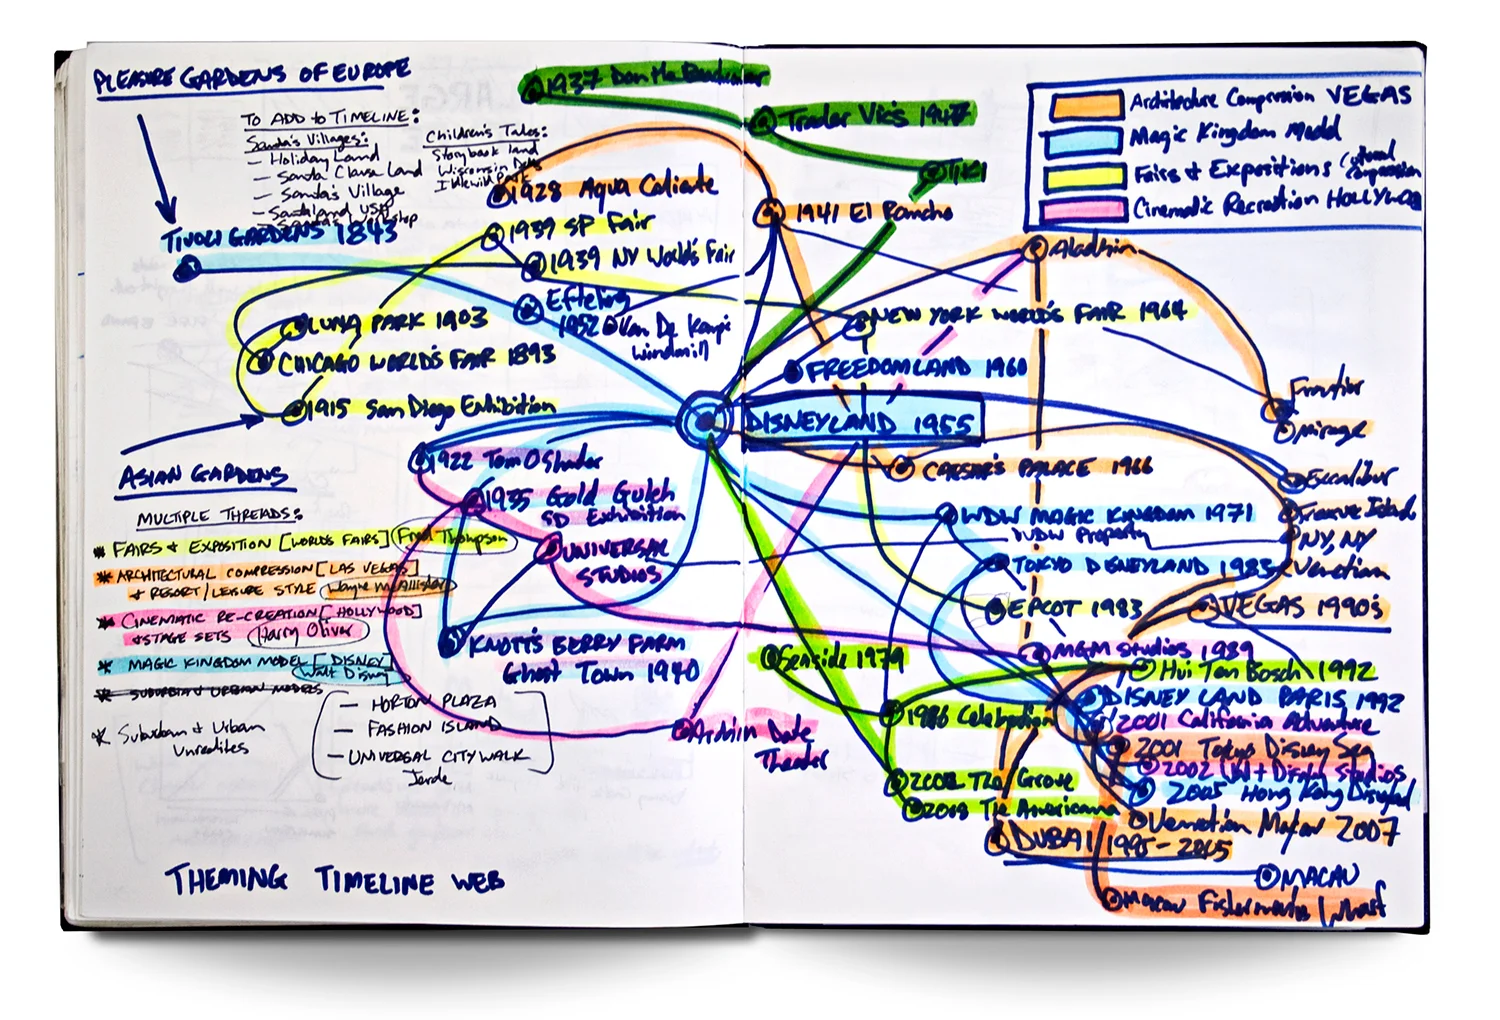 PLEASURE GARDENS OF EUROPE
TO ADD TO TIMELINE:
Santa's Villages:
— Holiday Land
— Santa Claus Land
— Santa's Village
— Santaland USA
Workshop
Children's Tales:
Storybook Land
Wisconsin Dells
Idlewild Park
TIVOLI GARDENS 1843
1937 Don the Beachcomber
Trader Vic's 1947
TIKI
1928 Agua Caliente
1941 El Rancho
1939 SF Fair
1939 NY World's Fair
Efteling
1952 Van De Kamp's
Windmill
LUNA PARK 1903
CHICAGO WORLD'S FAIR 1893
1915 San Diego Exhibition
ASIAN GARDENS
MULTIPLE THREADS:
* FAIRS & EXPOSITION [WORLD'S FAIRS] Fred Thompson
* ARCHITECTURAL COMPRESSION [LAS VEGAS]
& RESORT/LEISURE STYLE Wayne McAllister
* CINEMATIC RE-CREATION [HOLLYWOOD]
& STAGE SETS Harry Oliver
* MAGIC KINGDOM MODEL [DISNEY]
Walt Disney
* SUBURBIA & URBAN MODELS
* Suburban & Urban
— HORTON PLAZA
— FASHION ISLAND
— UNIVERSAL CITYWALK
Jerde
1922 Tom O'Shanter
1935 Gold Gulch
SD Exhibition
UNIVERSAL
STUDIOS
KNOTT'S BERRY FARM
Ghost Town 1940
THEMING TIMELINE WEB
Architecture Compression VEGAS
Magic Kingdom Model
Fairs & Expositions Cultural Compression
Cinematic Recreation HOLLYWOOD
Aladdin
NEW YORK WORLD'S FAIR 1964
FREEDOMLAND 1960
DISNEYLAND 1955
Frontier
Mirage
CAESAR'S PALACE 1966
Excalibur
WDW MAGIC KINGDOM 1971
Treasure Island
WDW Property
NY, NY
TOKYO DISNEYLAND 1983
Venetian
EPCOT 1983
VEGAS 1990's
MGM Studios 1989
Seaside 1979
Huis Ten Bosch 1992
DISNEYLAND PARIS 1992
1986 Celebration
2001 California Adventure
2001 Tokyo Disney Sea
Theater
2002 Walt Disney Studios
2002 The Grove
2005 Hong Kong Disneyland
2008 The Americana
Venetian Macau 2007
DUBAI 1995-2005
MACAU
Macau Fisherman's Wharf